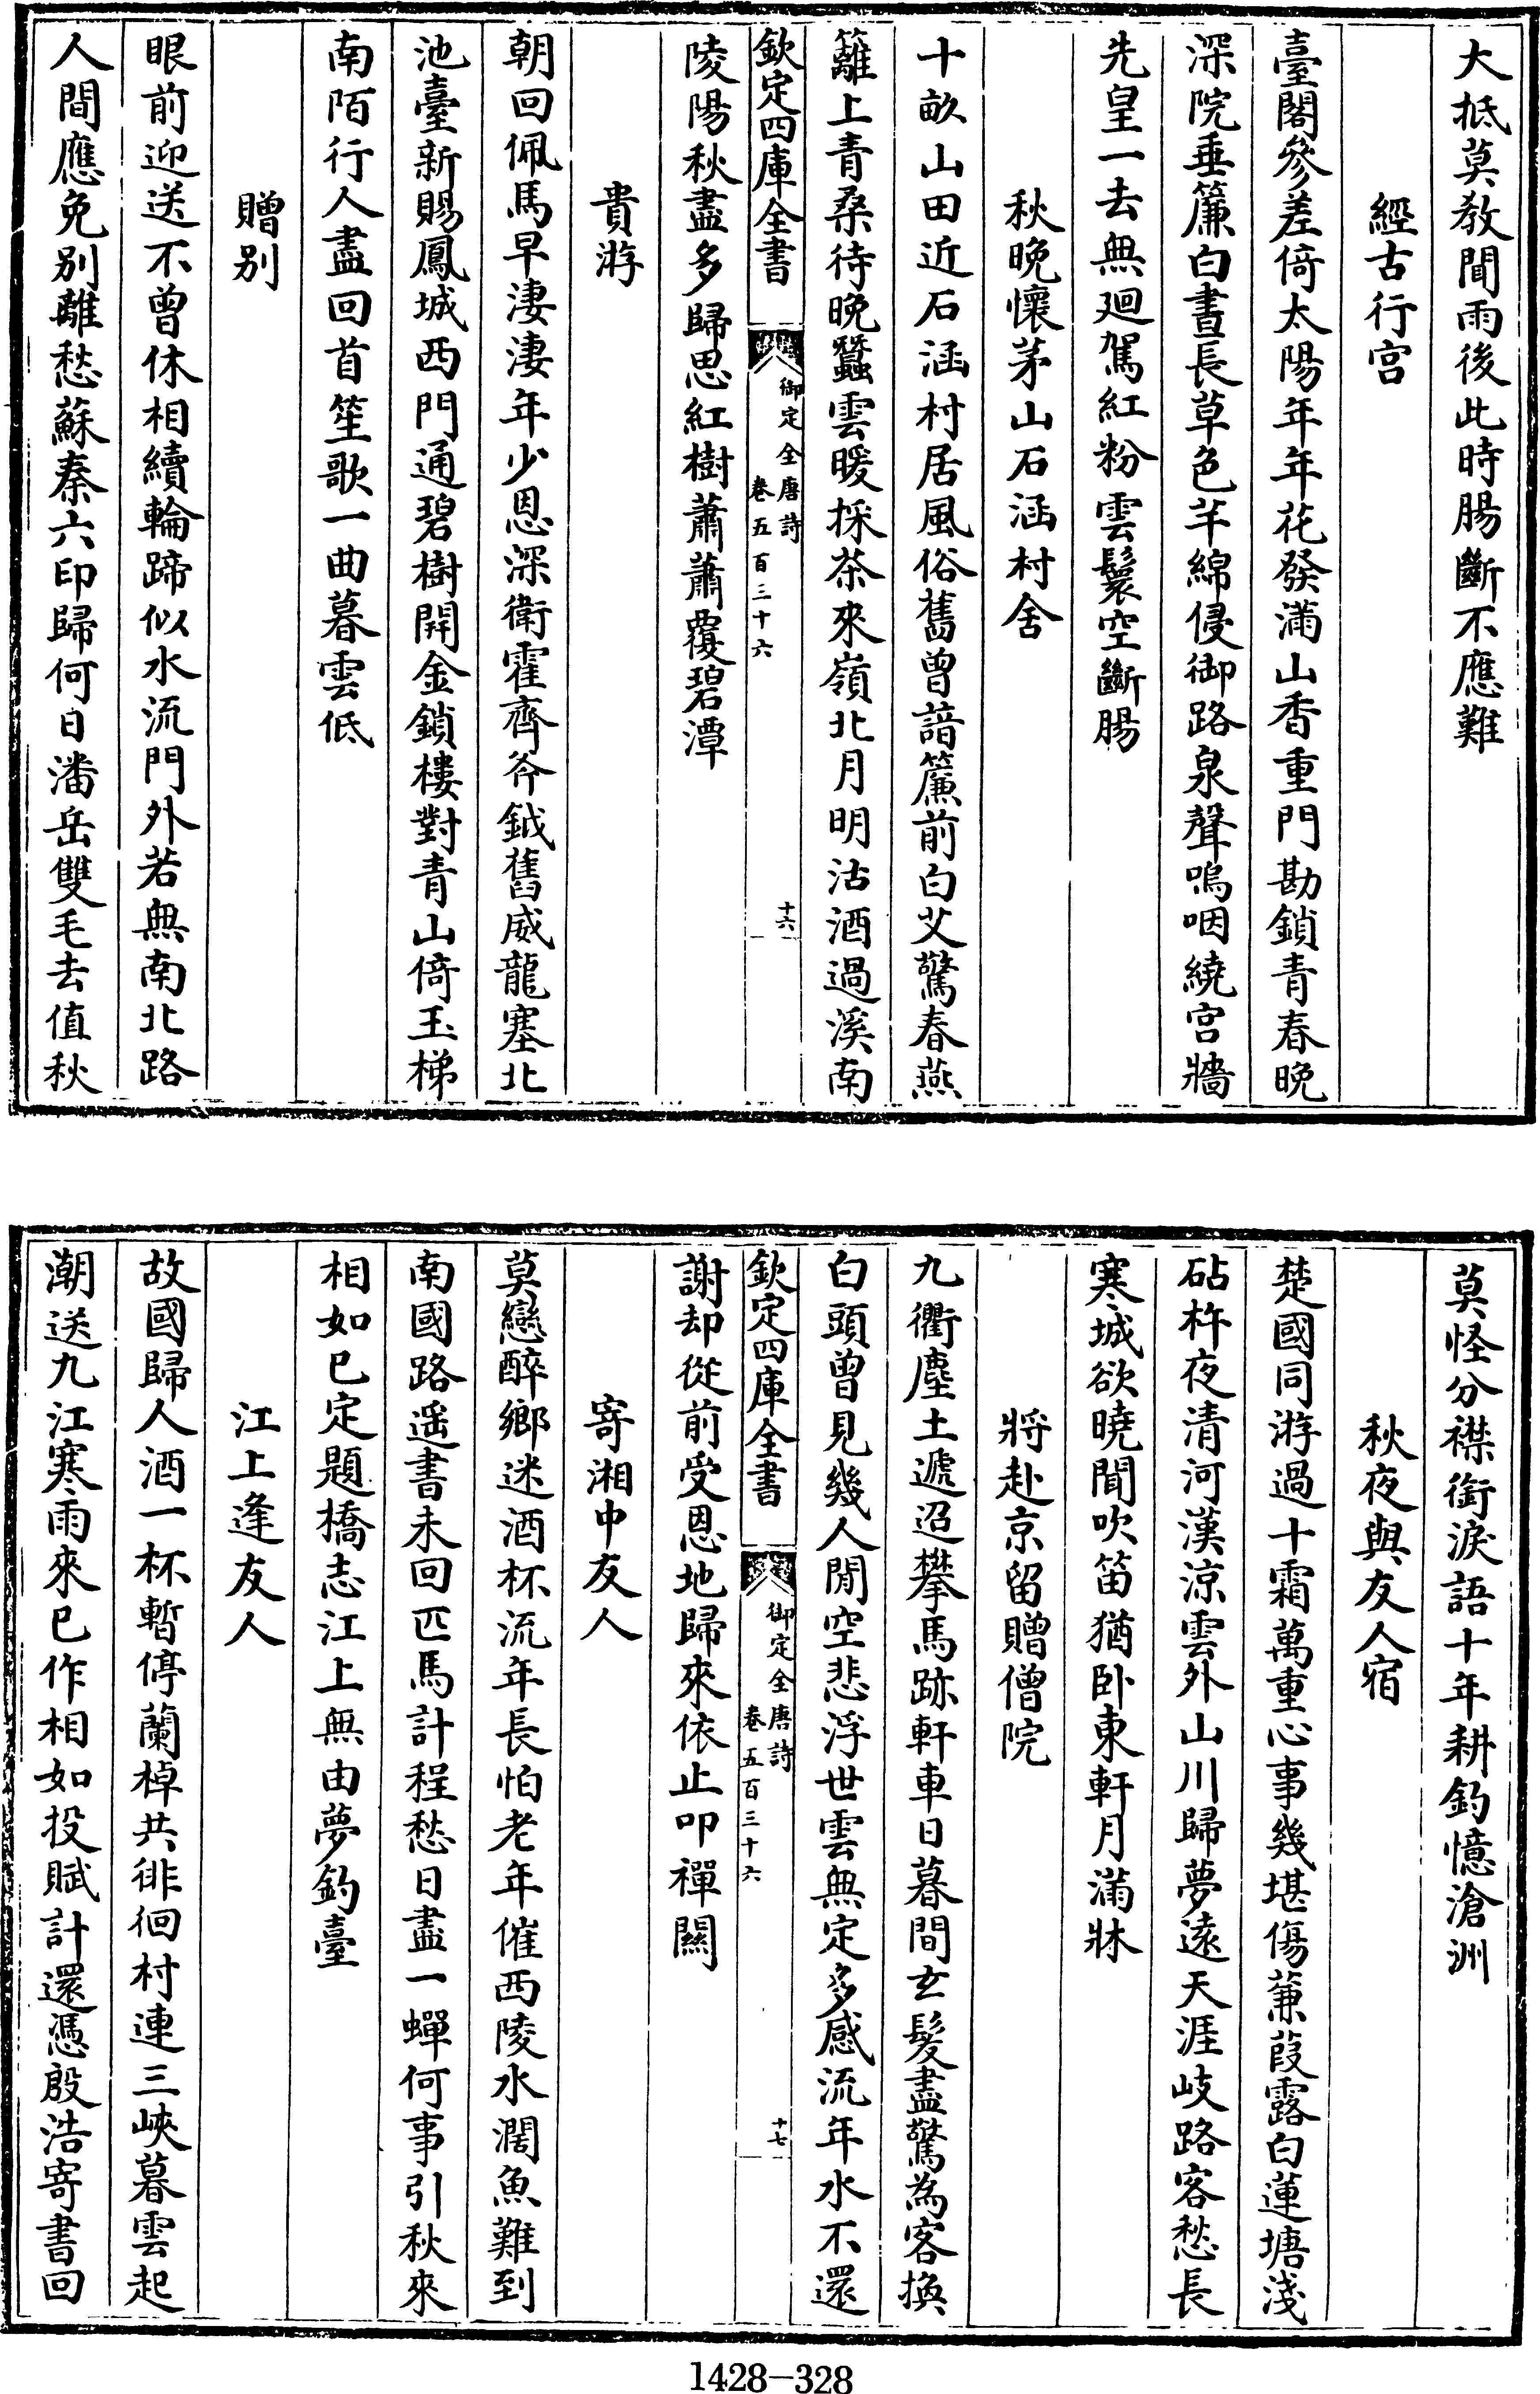 大抵莫教聞雨後此時腸斷不應難
經古行宫
臺閣參差倚太陽年年花發滿山香重門勘鎖青春晚
深院垂簾白晝長草色芊綿侵御路泉聲嗚咽繞宫牆
先皇一去無廻駕紅粉雲鬟空斷腸
秋晚懷茅山石涵村舍
十畝山田近石涵村居風俗舊曾諳簾前白艾驚春燕
籬上青桑待晚蠶雲暖採茶來嶺北月明沽酒過溪南
欽定四庫全書
御定全唐詩
卷五百三十六
十六
陵陽秋盡多歸思紅樹蕭蕭覆碧潭
貴游
朝回佩馬早淒淒年少恩深衛霍齊斧鉞舊威龍塞北
池臺新賜鳳城西門通碧樹開金鎖樓對青山倚玉梯
南陌行人盡回首笙歌一曲暮雲低
贈别
眼前迎送不曾休相續輪蹄似水流門外若無南北路
人間應免别離愁蘇秦六印歸何日潘岳雙毛去值秋
莫怪分襟銜淚語十年耕釣憶滄洲
秋夜與友人宿
楚國同游過十霜萬重心事幾堪傷蒹葭露白蓮塘淺
砧杵夜清河漢涼雲外山川歸夢遠天涯岐路客愁長
寒城欲曉聞吹笛猶卧東軒月滿牀
將赴京留贈僧院
九衢塵土遞追攀馬跡軒車日暮間玄髮盡驚為客換
白頭曾見幾人閒空悲浮世雲無定多感流年水不還
欽定四庫全書
御定全唐詩
卷五百三十六
十七
謝却從前受恩地歸來依止叩禪關
寄湘中友人
莫戀醉鄉迷酒杯流年長怕老年催西陵水濶魚難到
南國路遥書未回匹馬計程愁日盡一蟬何事引秋來
相如已定題橋志江上無由夢釣臺
江上逢友人
故國歸人酒一杯暫停蘭棹共徘徊村連三峽暮雲起
潮送九江寒雨來已作相如投賦計還憑殷浩寄書回
1428-328